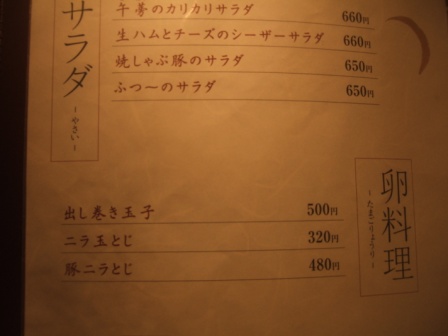 サラダ
～やさい～
牛蒡のカリカリサラダ 660円
生ハムとチーズのシーザーサラダ 660円
焼しゃぶ豚のサラダ 650円
ふつ～のサラダ 650円
卵料理
～たまごりょうり～
出し巻き玉子 500円
ニラ玉とじ 320円
豚ニラとじ 480円